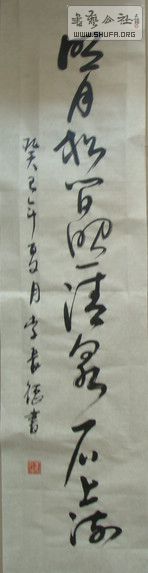 明月松间照一清泉石上流
癸巳年夏月李长德书
書藝公社
WWW.SHUFA.ORG